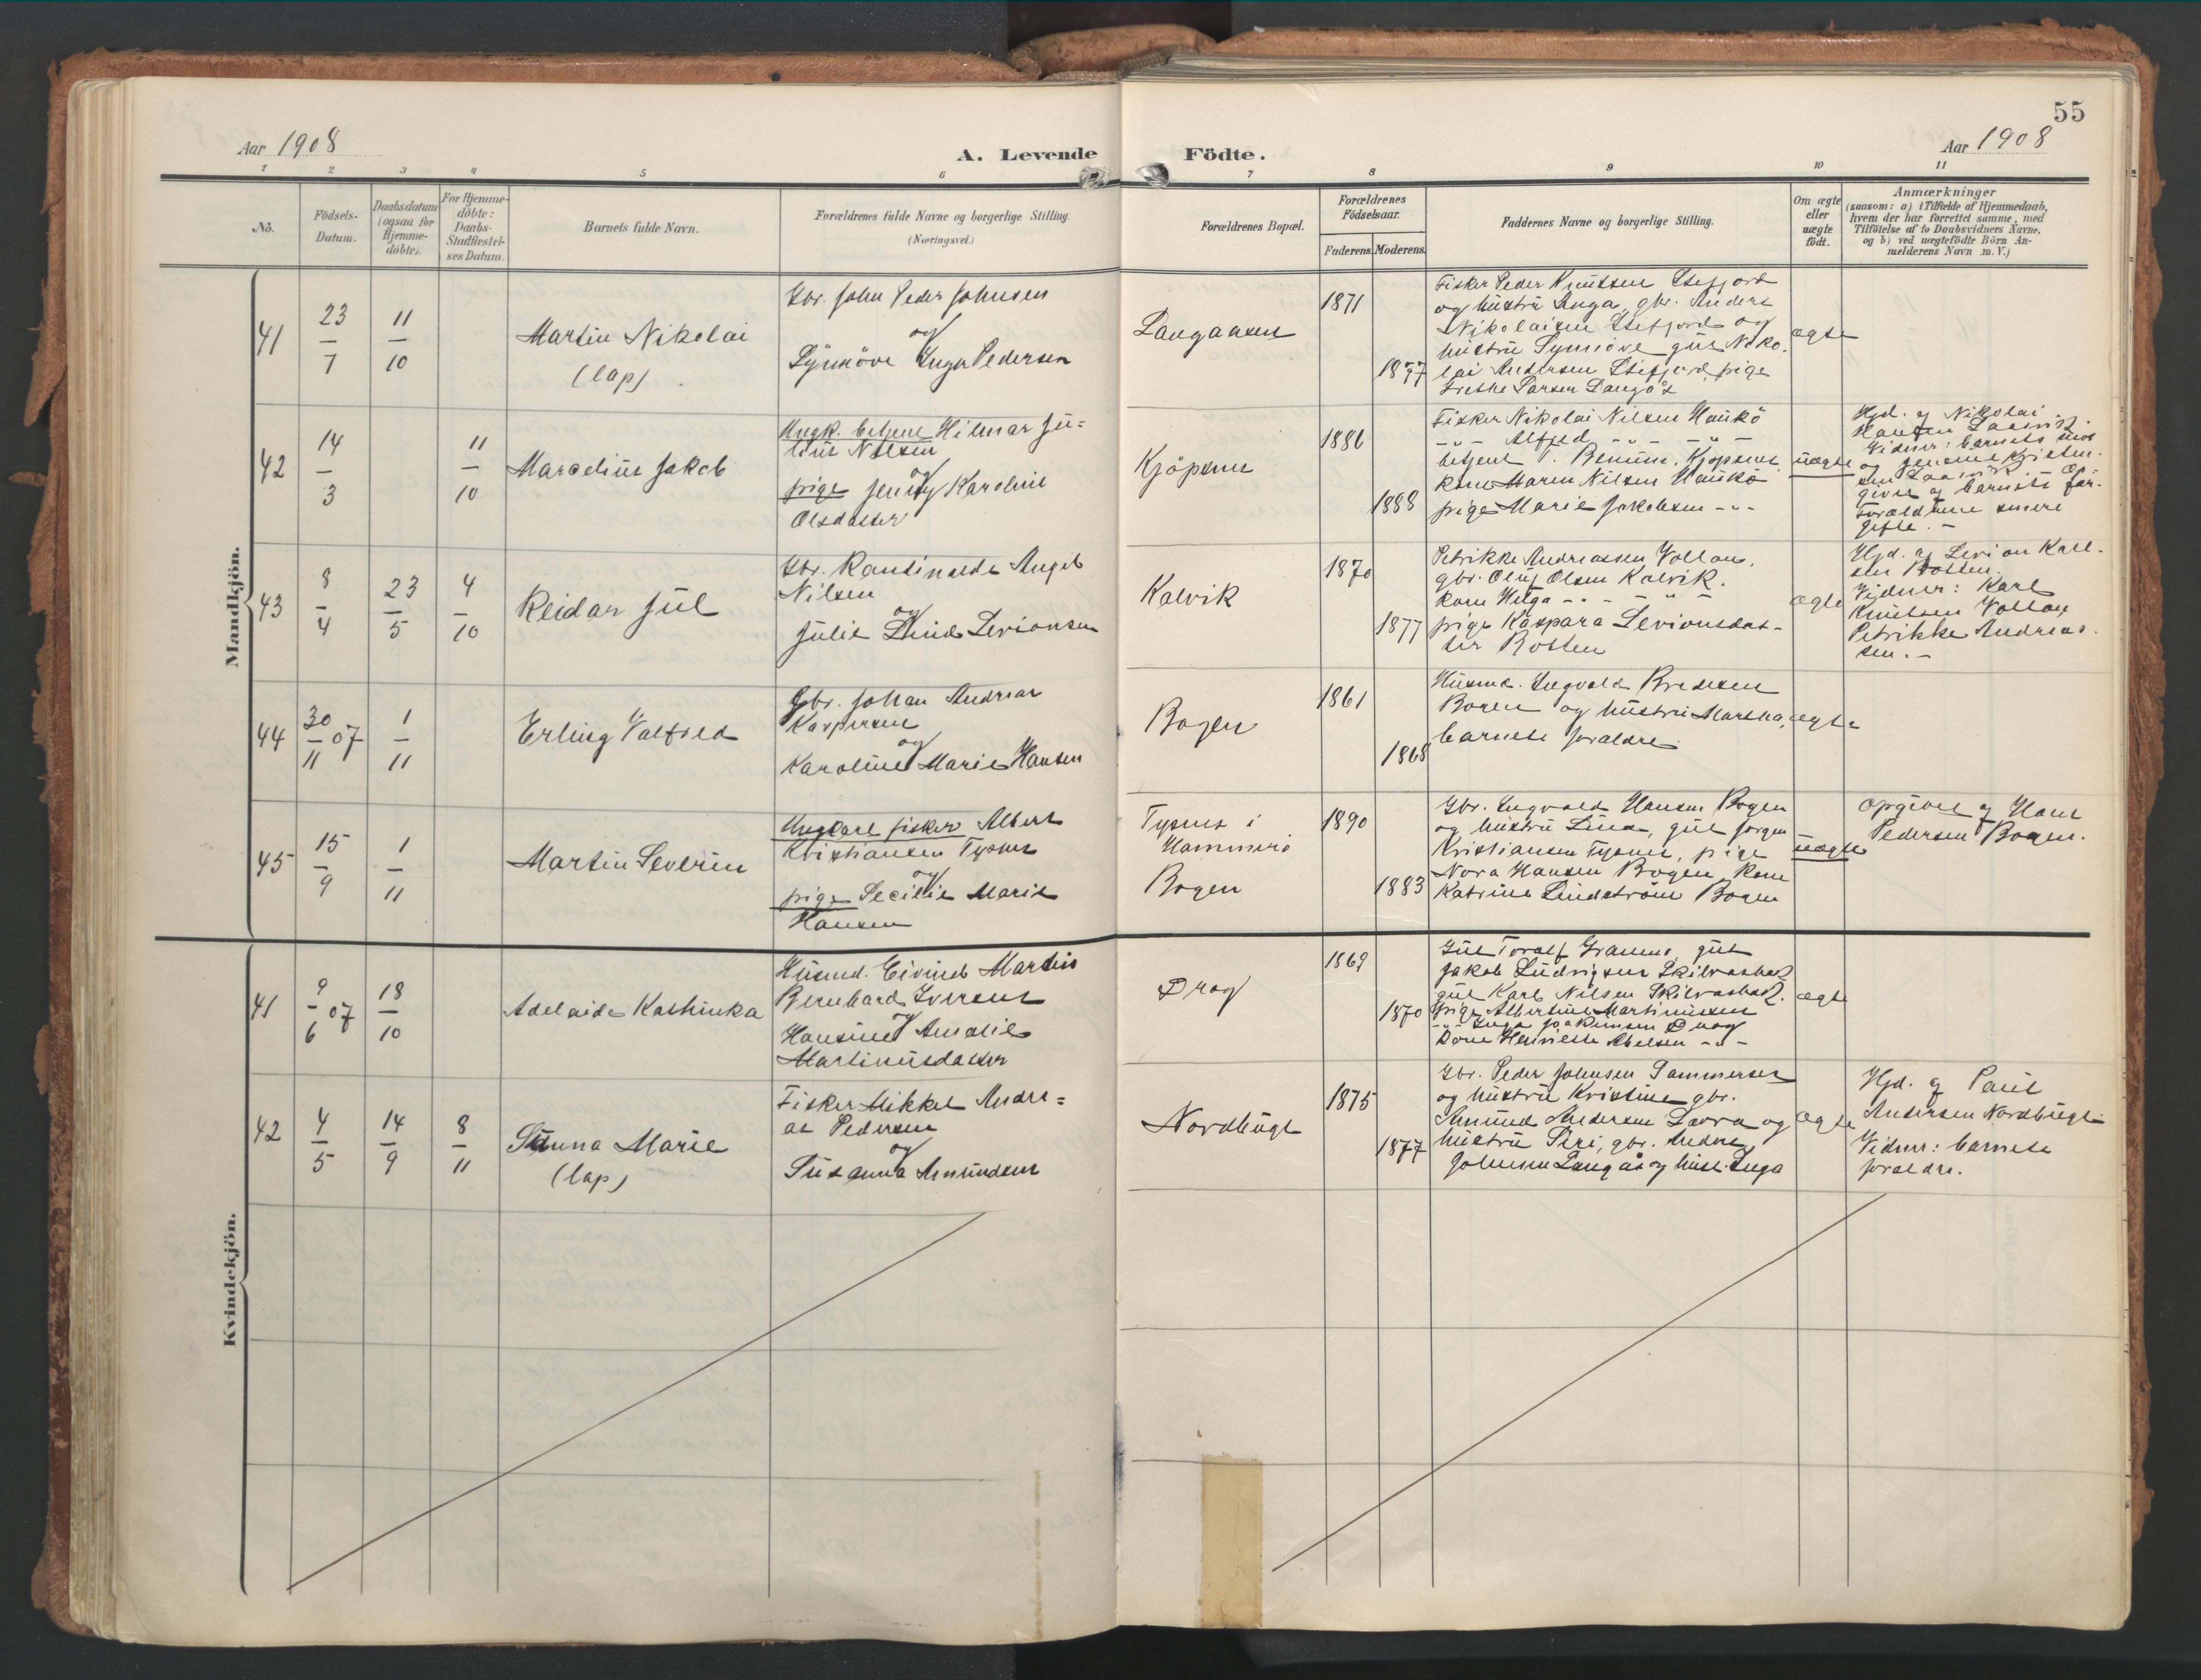 55
Aar 1908
A. Levende Födte.
Aar 1908
1 2 3 4 5 6 7 8 9 10 11
No.
Födsels-
Datum.
Daabsdatum
(ogsaa for
Hjemme-
döbte).
For Hjemme-
döbte:
Daabs-
Stadfæstel-
ses Datum.
Barnets fulde Navn.
Forældrenes fulde Navne og borgerlige Stilling.
(Næringsvei.)
Forældrenes Bopæl.
Forældrenes
Födselsaar.
Faderens. Moderens.
Faddernes Navne og borgerlige Stilling.
Om ægte
eller
uægte
födt.
Anmærkninger
(saasom: a) i Tilfælde af Hjemmedaab,
hvem der har forrettet samme, med
Tilföielse af to Daabsvidners Navne,
og b) ved uægtefödte Börn An-
melderens Navn m. V.)
Mandkjön.
41
23/7
11/10
Martin Nikolai
(lap)
Gbr. John Peder Johnsen
og
Synnöve Inga Pedersen
Langaasen
1871
1877
Fisker Peder Knutsen Stefjord
og hustru Inga, gbr. Anders
Nikolaisen Stefjord og
hustru Synnöve gut Niko-
lai Andersen Stefjord, pige
Grethe Larsen Langås
ægte
42
14/3
11/10
Marcelius Jakob
Ungk. betjent Hilmar Ju=
lius Nilsen
og
pige Jenny Karoline
Olsdatter
Kjöpsnes
1886
1888
Fisker Nikolai Nilsen Haukö
-"- Alfred -"- -"-
betjent Benum, Kjöpsnes
kone Maren Nilsen Haukö
pige Marie Jakobsen -"-
uægte
Hjd. af Nikolai
Hansen
Vidner: barnets mor
og Kristen-
sen Op-
givet af barnets far.
Forældrene senere
gifte. -
43
8/4
23/5
4/10
Reidar Jul
Gbr. Angel
Nilsen
og
Julie Levionsen
Kalvik
1870
1877
Petrikke Andreassen Vollan,
gbr. Oluf Olsen Kalvik.
kone Helga -"- -"-
pige Kaspara Levionsdat-
ter Rotten
ægte
Hjd. af Levion Karl-
sen Rotten.
Vidner: Karl
Knutsen Vollan
Petrikke Andreas-
sen. -
44
30/11 07
1/11
Erling Valfred
Gbr. Johan Andreas
Kaspersen
og
Karoline Marie Hansen
Bogen
1861
1868
Husmd. Ingvald Bredesen
Bogen og hustru Martha,
barnets forældre
ægte
45
15/9
1/11
Martin Severin
Ungkarl fisker Albert
Kristiansen Tysnes
og
pige Secilie Marie
Hansen
Tysnes i
Hammerö
Bogen
1890
1883
Gbr. Ingvald Hansen Bogen
og hustru Lina, gut Jörgen
Kristiansen Tysnes, pige
Nora Hansen Bogen, kone
Katrine Lindström Bogen
uægte
Opgivet af Hans
Pedersen Bogen.
Kvindekjön.
41
9/6 07
18/10
Adelaide Kathinka
Husmd. Eivind Martin
Bernhard Iversen
og
Hansine Amalie
Martinusdatter
Drag
1869
1870
Gut Toralf Gramme, gut
Jakob Ludvigsen Skilvasbak.
gut Karl Nilsen Skilvasbak.
pige Albertine Martinussen
-"- Inga Joakimsen Drag
Kone Henriette Abelsen -"-
ægte
42
4/5
14/9
8/11
Sunna Marie
(lap)
Fisker Mikkel Andre=
as Pedersen
og
Susanna Amundsen
Nordbugt
1875
1877
Gbr. Peder Johnsen
og hustru Kristine gbr.
Amund Andersen og
hustru Siri, gbr. Anders
Johnsen Langås og hust. Inga
ægte
Hjd. af Paul
Andersen Nordbugt
Vidner: barnets
forældre.